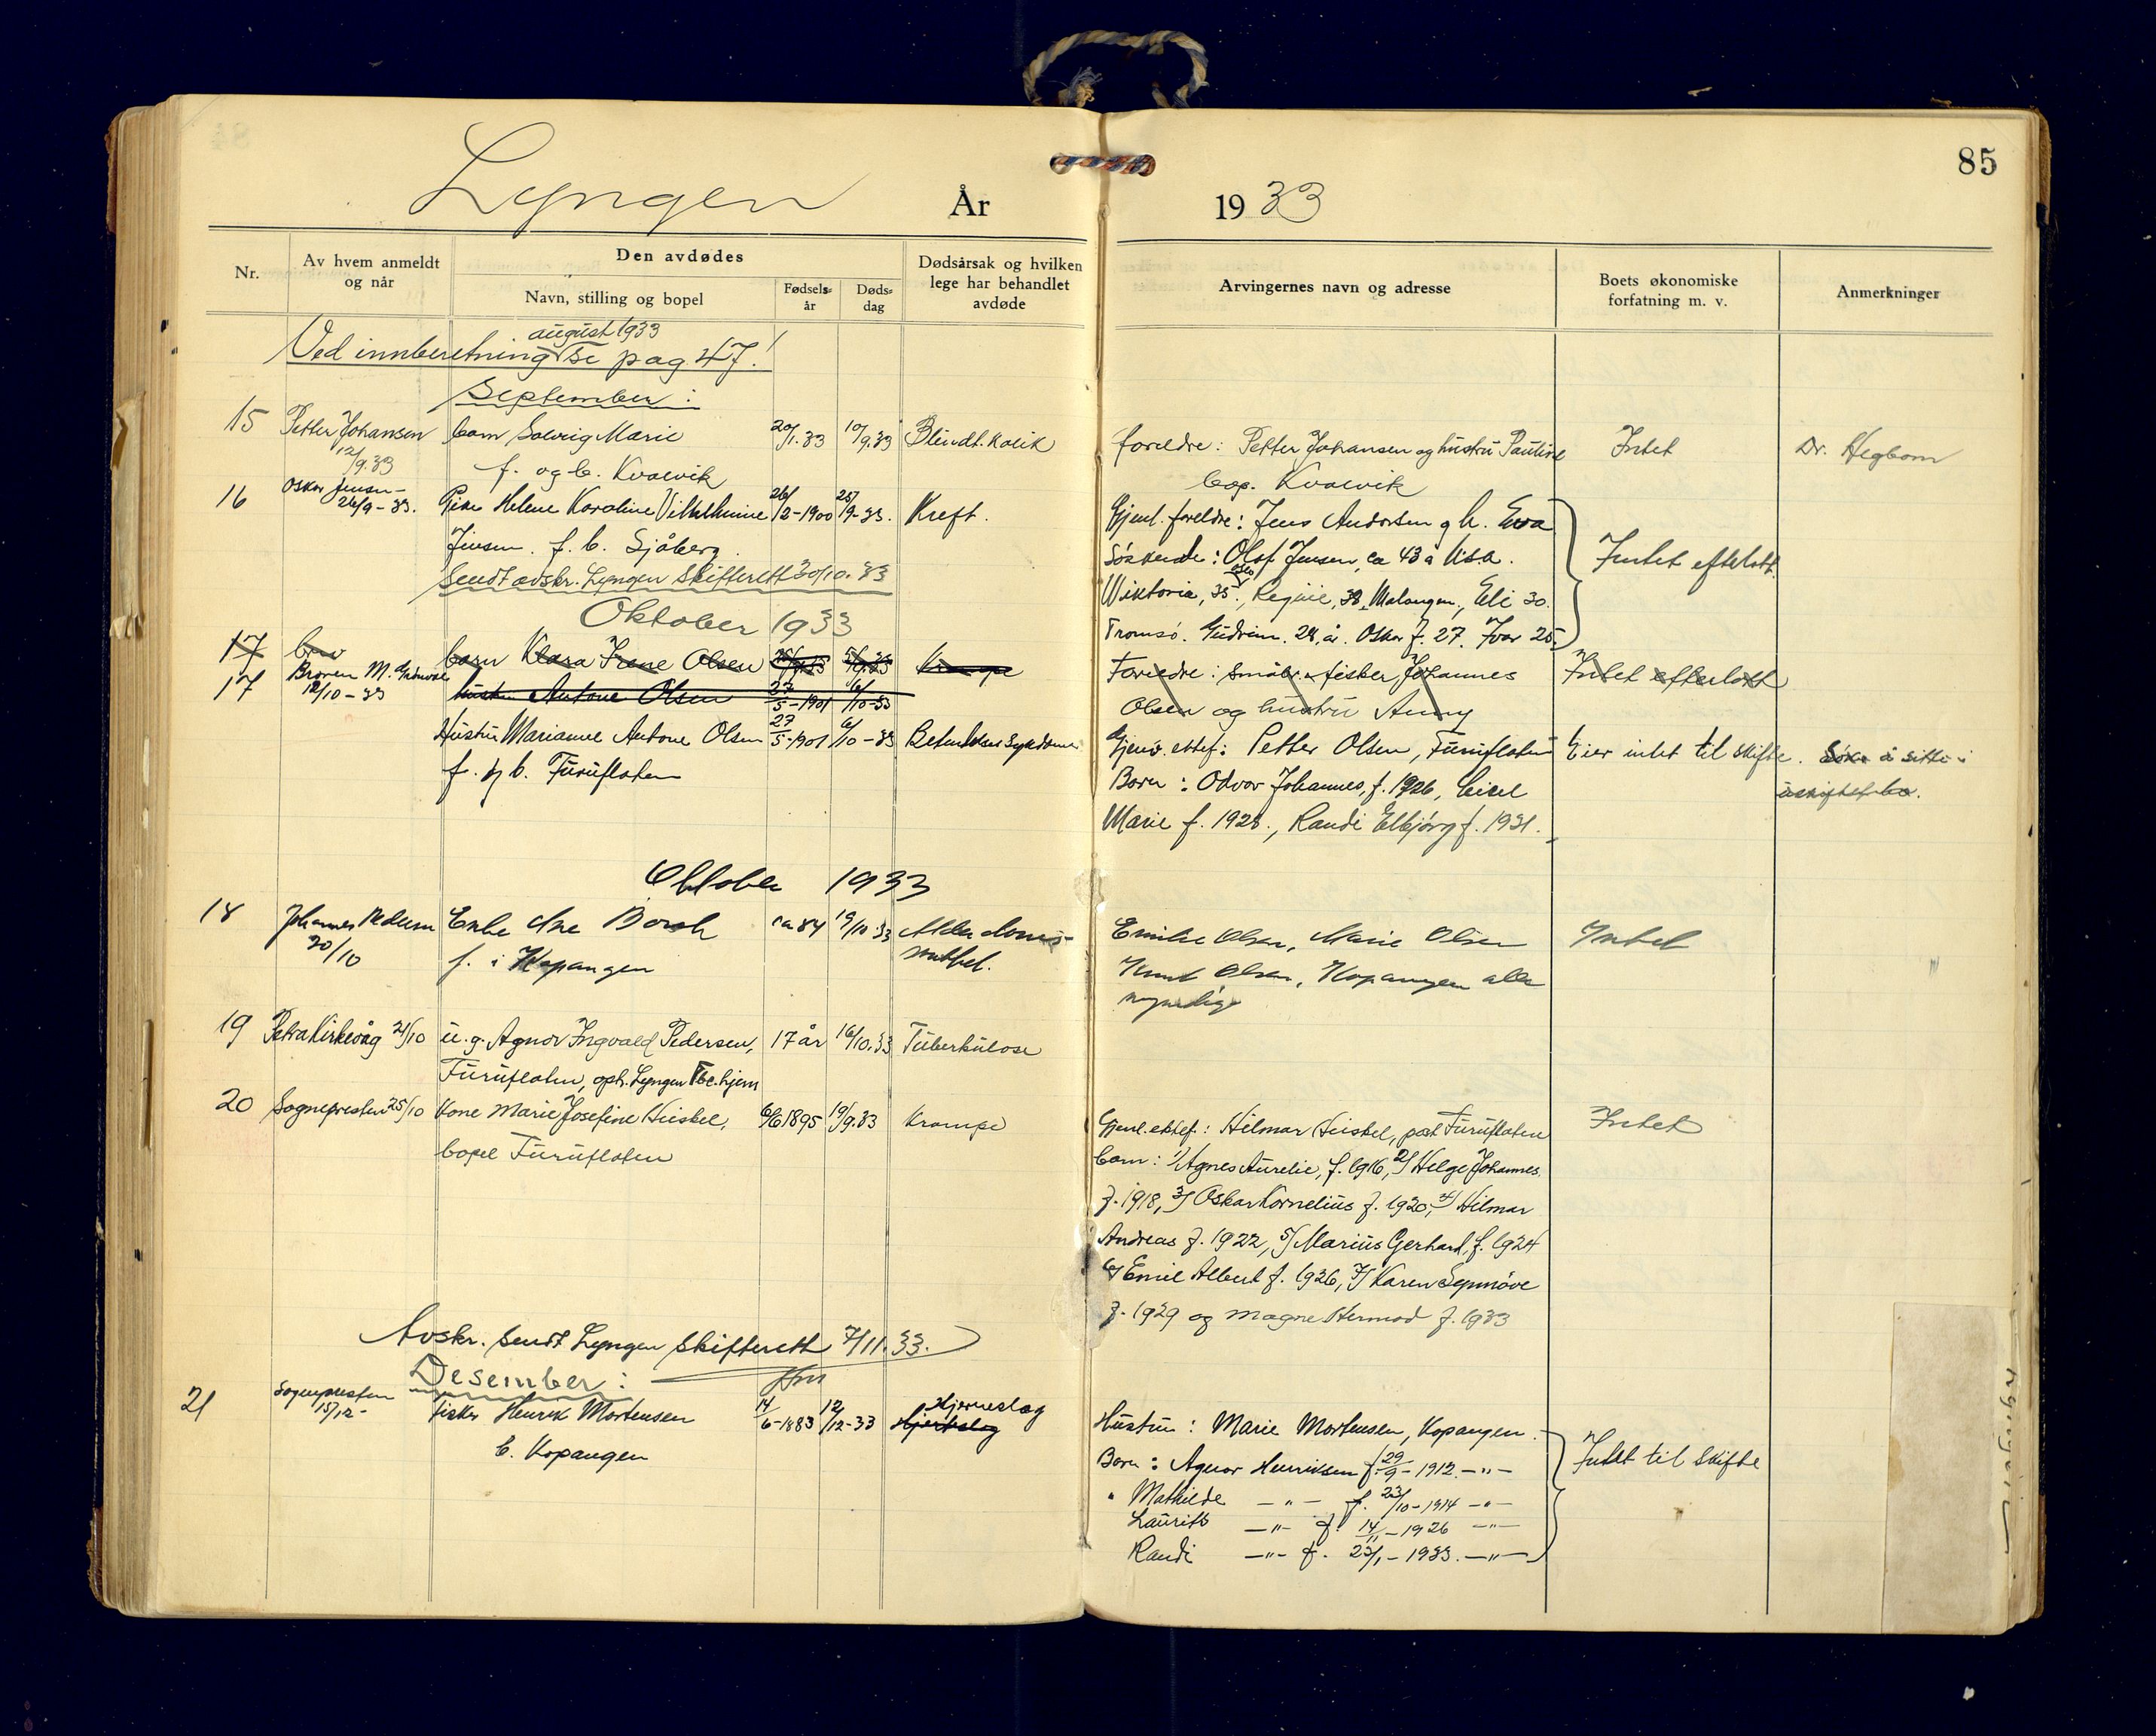 85
Lyngen År 1933
Nr.
Av hvem anmeldt og når
Den avdødes
Navn, stilling og bopel
Fødselsår
Dødsdag
Dødsårsak og hvilken lege har behandlet avdøde
Arvingernes navn og adresse
Boets økonomiske forfatning m. v.
Anmerkninger
august 1933
Ved innberetning se pag. 47!
September:
15 Petter Johansen barn Solveig Marie 20/1.33 10/9.33 Blindt. kolik foreldre: Petter Johansen og hustru Pauline Intet Dr. Hegbom
12/9.33 f. og b. Kvalvik bop. Kvalvik
16 Oskar Jensen 26/9-33. Pike Helene Karoline Vilhelmine 26/2-1900 25/9-33. Kreft. Gjenl. foreldre: Jens Andersen og h. Eva
Jensen. f. b. Sjåberg. Søskende: Olaf Jensen, ca 43 å U.S.A. Intet efterlatt.
Sendt avskr. Lyngen Skifterett 30/10.33
Wiktoria, 35., Regine, 38, Malangen, Eli 30.
Oktober 1933
Tromsø. Gudrun. 28. år. Oskar f. 27. Ivar 25.
17 barn Klara Irene Olsen Krampe Foreldre: småbr. fisker Johannes Intet efterlatt
Olsen og hustru Anny
17 Broren M. 12/10-33 hustru Antone Olsen 27/5-1901 6/10-33
Hustru Marianne Antone Olsen 27/5-1901 6/10-33 Gjenv. ektef: Petter Olsen, Furuflaten Eier intet til skifte. Søk. å sitte i
f. og b. Furuflaten Barn: Odvar Johannes, f. 1926, uskiftet bo.
Marie f. 1928., Randi Elbjørg f. 1931.
Oktober 1933
18 Johannes Pedersen Enke Ane Borch ca 84 19/10 33 Alderdoms- Emilie Olsen, Marie Olsen Intet
20/10 f. i Kopangen Knut Olsen, Kopangen alle
myndige
19 Petra Kirkevåg 21/10 u.g. Agnor Ingvald Pedersen, 17 år 16/10.33 Tuberkulose
Furuflaten, oph. Lyngen Tbc. hjem
20 Sognepresten 25/10 Kone Marie Josefine Heiskel, 6/6 1895 19/9.33 Krampe Gjenl. ektef.: Hilmar Heiskel, pæt Furuflaten Intet
bopel Furuflaten barn: 1/ Agnes Aurelie, f. 1916, 2/ Helge Johannes
f. 1918, 3/ Oskar Kornelius f. 1920, 4/ Hilmar
Andreas f. 1922, 5/ Marius Gerhard, f. 1924
6/ Emil Albert f. 1926, 7/ Karen Synnøve
f. 1929 og Magne Hermod f. 1933
Avskr. sendt Lyngen Skifterett 7/11.33.
Desember:
21 Sognepresten 15/12- fisker Henrik Mortensen 14/6-1883 12/12-33 Hjerneslag Hustru: Marie Mortensen, Kopangen.
b. Kopangen Barn: Agnor Henriksen f. 29/9-1912 -"- Intet til skifte
" Mathilde -"- f. 23/10-1914 -"-
Laurits -"- f. 14/11-1926 -"-
Randi -"- f. 23/1-1933. -"-